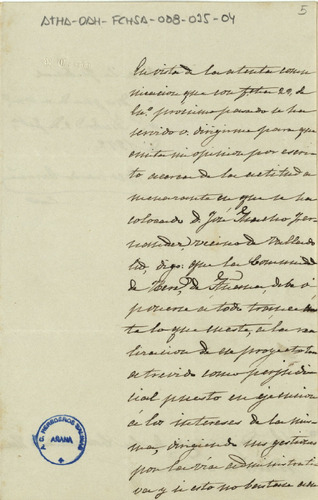 ATHA-DAH-FCHSA-008-025-04
5
En vista de la atenta comu
nicacion que con fecha 29 de
En.º proximo pasado se ha
servido V. dirigirme para que
emita mi opinion por escri
to acerca de la actitud a
menazante en que se ha
colocado D. José Fer
nandez, vecino de Vallado
lid, digo: que la Comunid
de Hered.s de debe o
ponerse a todo trance cues
te lo que cueste, a la rea
lizacion de su proyecto tan
atrevido como perjudi
cial puesto en ejecucion
á los intereses de la mis
ma, dirigiendo sus gestiones
por la via administrati
va y si esto no bastase
A. C. HEREDEROS SALINAS
ARANA